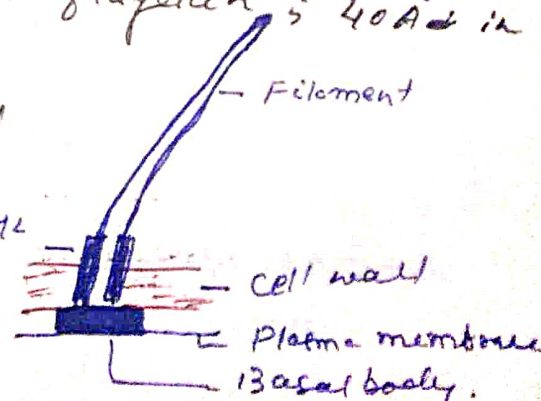 flagellin 5 40A in
Filament
Cell wall
Plasma membrane
Basal body.